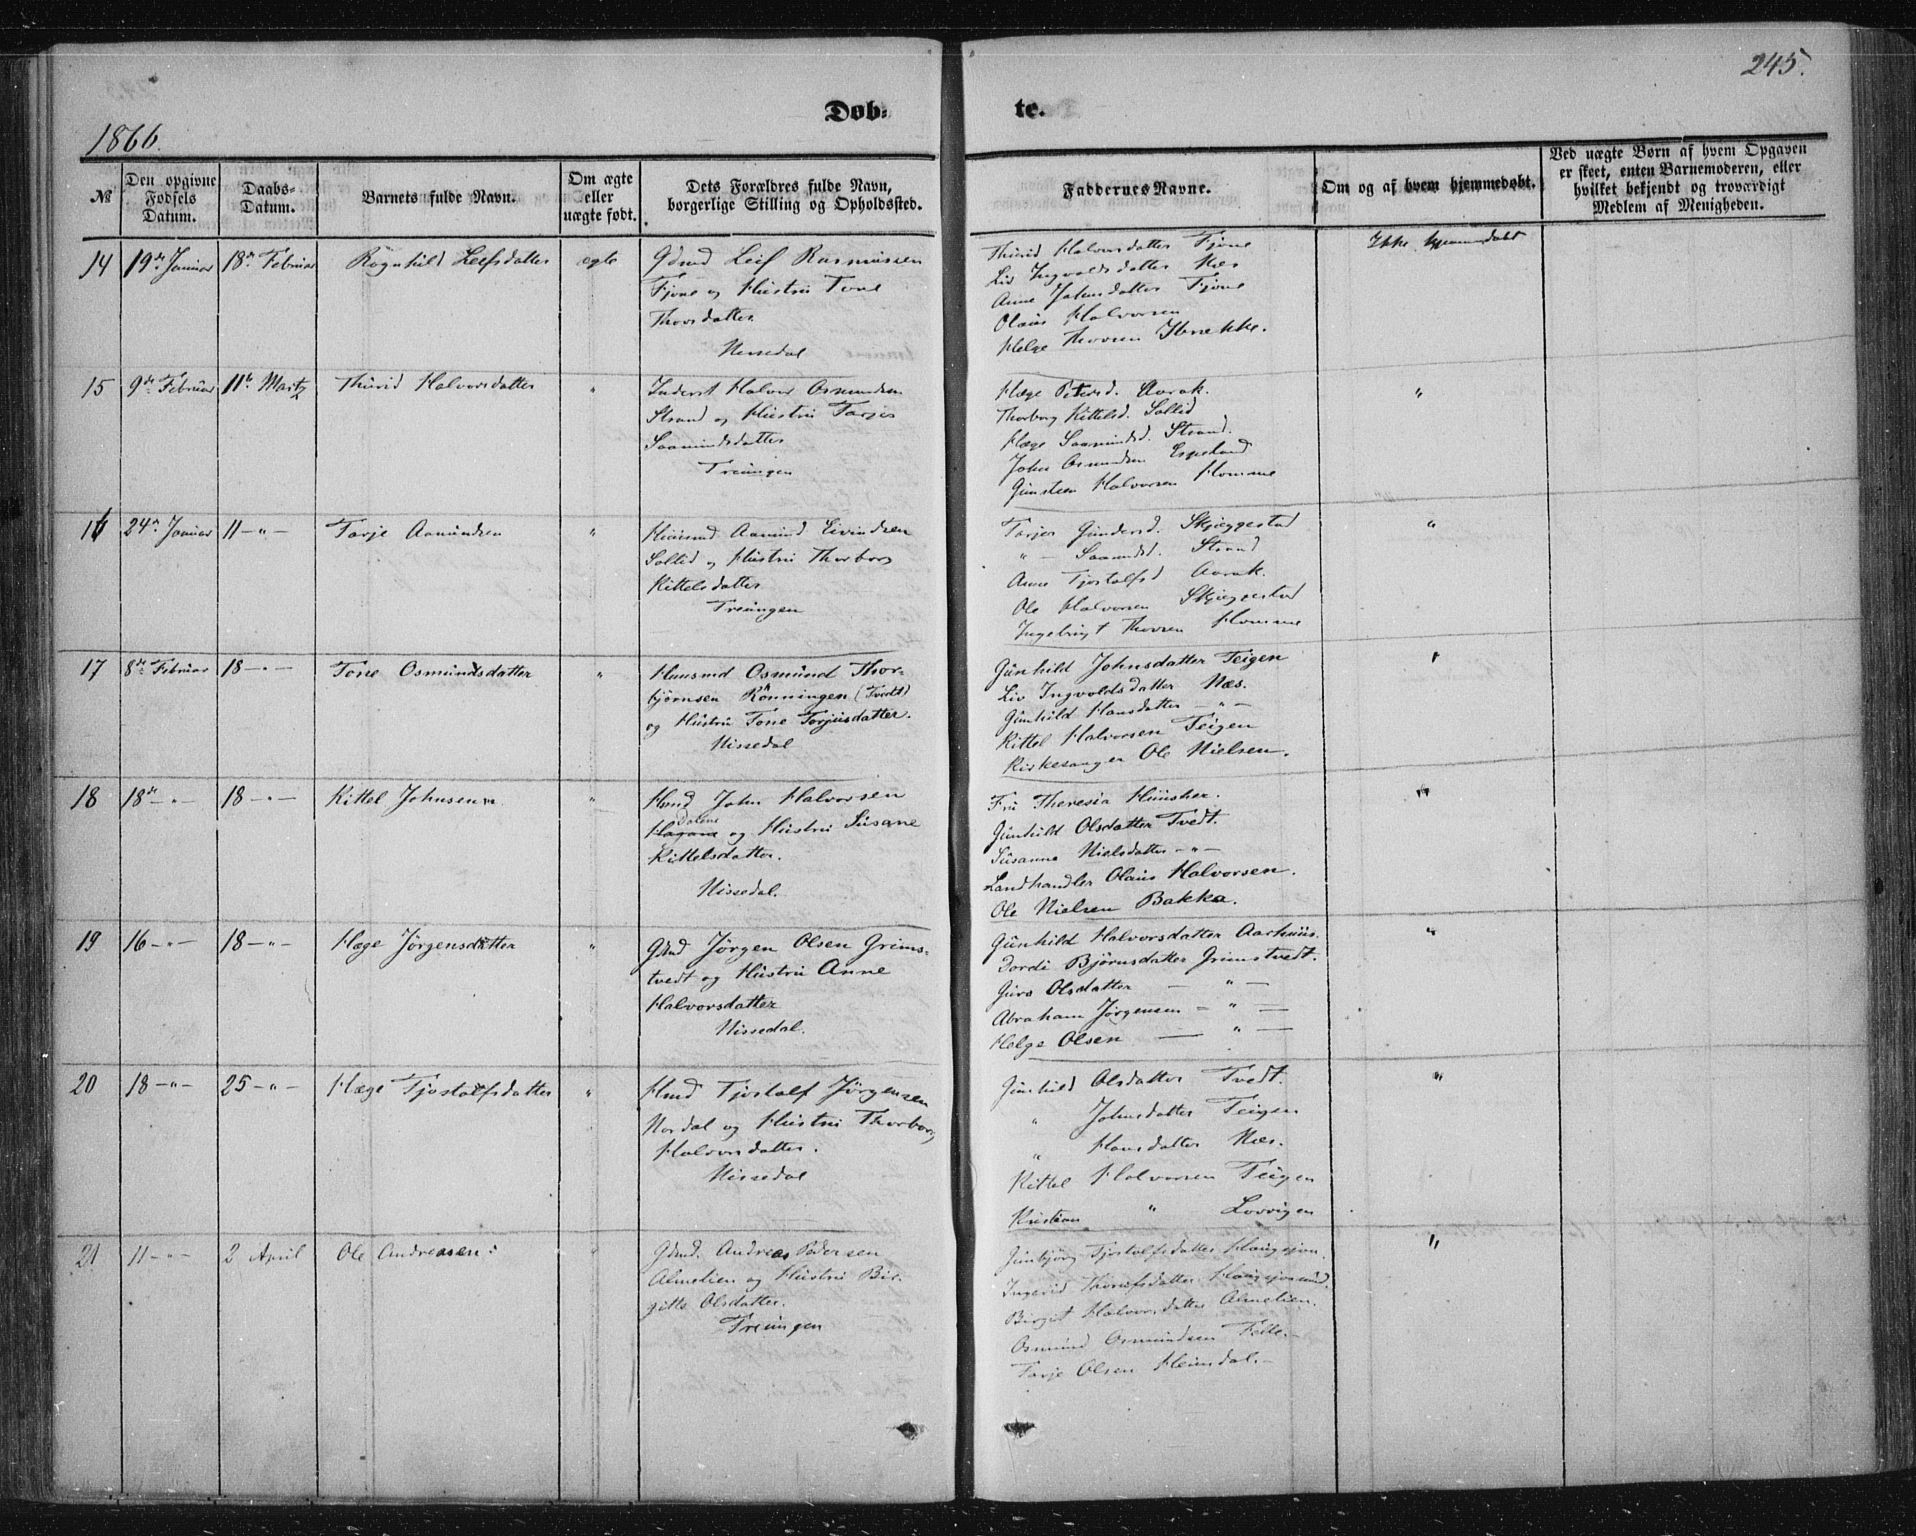 245.
Døb-
te.
1866.
№
Den opgivne Fødsels Datum.
Daabs-Datum.
Barnets fulde Navn.
Om ægte eller uægte født.
Dets Forældres fulde Navn, borgerlige Stilling og Opholdssted.
Faddernes Navne.
Om og af hvem hjemmedøbt.
Ved uægte Børn af hvem Opgaven er skeet, enten Barnemoderen, eller hvilket bekjendt og troværdigt Medlem af Menigheden.
14 19de Januar 18de Februar Rognhild Leifsdatter egte Gdmd Leif Rasmussen
Fjone og Hustru Tone
Thorsdatter
Nissedal
Thurid Halvorsdatter Fjone
Liv Ingvoldsdatter Næs
Anne Johnsdatter Fjone
Olaus Halvorsen
Helge Thorsen
Ikke hjemmedøbt
15 9de Februar 11te Marts Thurid Halvorsdatter " Inderst Halvor Osmundsen
Strand og Hustru Tarjer
Saamundsdatter
Treungen
Hæge Petersd. Aarak.
Thorborg Kittelsd. Soltid
Hæge Saamundsd. Strand.
John Osmundsen Espeland
Gunsteen Halvorsen Homme
"
16 24de Januar 11 - " - Tarje Aamundsen " Huusmd Aamund Eivindsen
Soltid og Hustru Thorborg
Kittelsdatter
Treungen
Tarjer Gundersd. Skjeggestad
" - Saamdsd. Strand
Anne Tjostolfsd Aarak.
Ole Halvorsen Skjeggestad
Ingebrigt Thorsen Homme
"
17 8de Februar 18 - " - Tone Osmundsdatter " Huusmd Osmund Thor-
bjørnsen Rønningen (Tvedt)
og Hustru Tone Torjusdatter.
Nissedal
Gunhild Johnsdatter Teigen
Liv Ingvoldsdatter Næs.
Gunhild Hansdatter - " -
Kittel Halvorsen Teigen
Kirkesanger Ole Nielsen.
"
18 18de - " - 18 - " - Kittel Johnsen " Hmd John Halvorsen
Dalene
og Hustru Susane
Kittelsdatter.
Nissedal.
Fru Theresia Huusher.
Gunhild Olsdatter Tvedt.
Susanne Nielsdatter - " -
Landhandler Olaus Halvorsen.
Ole Nielsen Bakka.
"
19 16 - " - 18 - " - Hæge Jørgensdatter " Gdmd Jørgen Olsen Grims-
tvedt og Hustru Anne
Halvorsdatter
Nissedal.
Gunhild Halvorsdatter Aarhuus.
Dordi Bjørnsdatter Grimstvedt.
Guro Olsdatter - " -
Abraham Jørgensen - " -
Helge Olsen - " -
"
20 18 - " - 25 - " - Hæge Tjostolfsdatter " Hmd Tjostolf Jørgensen
Nordal og Hustru Thorborg
Halvorsdatter.
Nissedal
Gunhild Olsdatter Tvedt.
" Johnsdatter Teigen
" Hansdatter Næs.
Kittel Halvorsen Teigen
Kristian " Lovvigen
"
21 11 - " - 2 April Ole Andreasen " Gdmd. Andreas Pedersen
Almelien og Hustru Bir-
gitte Olsdatter.
Treungen
Gunbjørg Tjostolfsdatter Haugsjøen.
Ingerid Thorolfsdatter
Birgit Halvorsdatter Almelien.
Osmund Osmundsen Felle.-
Tarje Olsen Heimdal.-
"